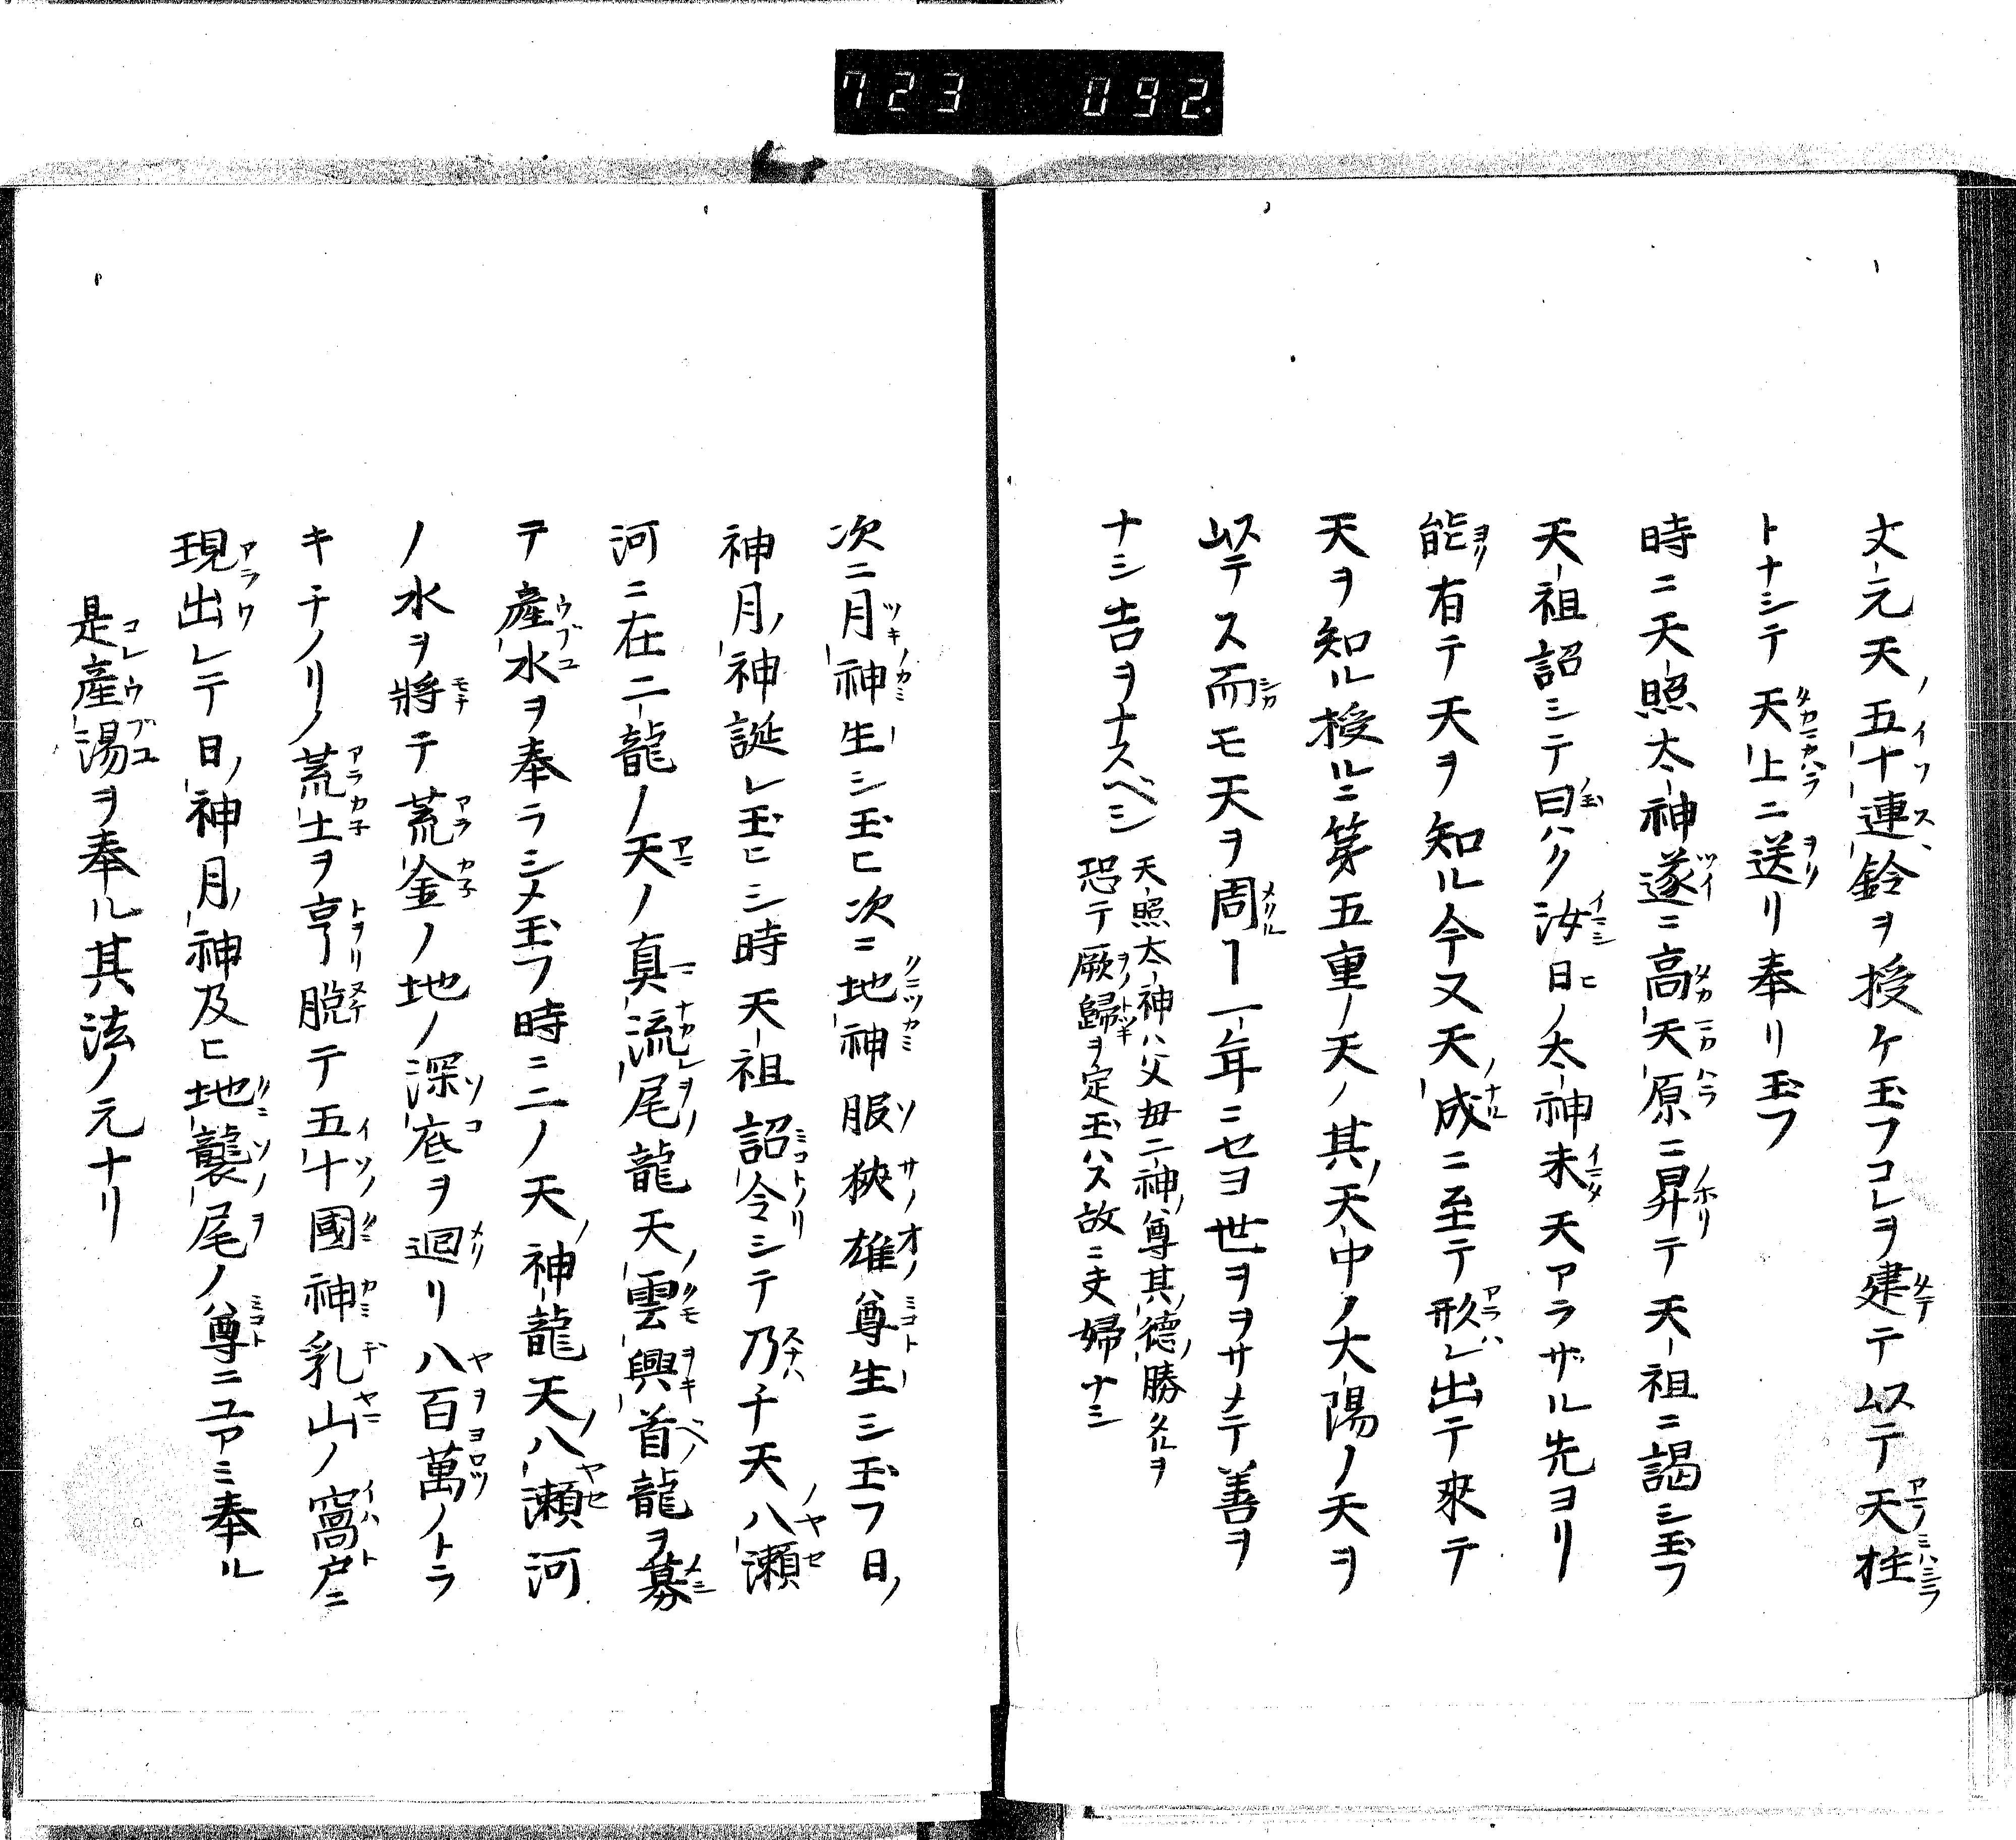 723 092
文元天五十連鈴ヲ授ケ玉フコレヲ建テ以テ天柱
トナシテ天上ニ送リ奉リ玉フ
時ニ天照太神遂ニ高天原ニ昇テ天祖ニ謁シ玉フ
天祖詔シテ曰ハク汝日ノ太神未天アラザル先ヨリ
能有テ天ヲ知ル今又天成ニ至テ形レ出テ來テ
天ヲ知ル授ルニ第五重ノ天ノ其天中ノ大陽ノ天ヲ
以テス而モ天ヲ周ー一年ニセヨ世ヲヲサメテ善ヲ
ナシ吉ヲナスベシ
天照太神ハ父毋二神ノ尊其ノ德ノ勝タルヲ
恐テ厥歸ヲ定玉ハス故ニ夫婦ナシ
次ニ月神生シ玉ヒ次ニ地神服狹雄尊生シ玉フ日ノ
神月ノ神誕レ玉ヒシ時天祖詔令シテ乃千天八瀬
河ニ在二龍ノ天ノ真流尾龍天ノ雲興首龍ヲ募
テ産水ヲ奉ラシメ玉フ時ニ二ノ天ノ神龍天ノ八瀬河
ノ水ヲ將テ荒金ノ地ノ深底ヲ迴リ八百萬ノトラ
キチノリノ荒土ヲ亨脱テ五十國神乳山ノ窩戸ニ
現出レテ日ノ神月ノ神及ヒ地襲尾ノ尊ニユアミ奉ル
是産湯ヲ奉ル其法ノ元ナリ